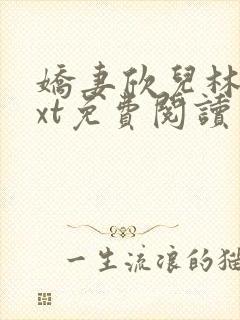 嬌妻欣兒林
xt免費閱讀
一生流浪的猫